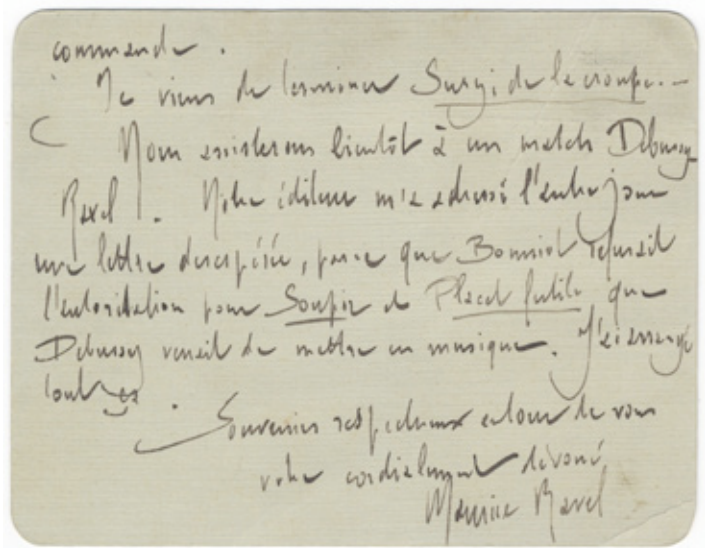 commande.
Je viens de terminer Surgi de la croupe. —
Nous assisterons bientôt à un match Debussy-
Ravel. Notre éditeur m'a adressé l'autre jour
une lettre désespérée, parce que Bonniot refusait
l'autorisation pour Soupir et Placet futile que
Debussy venait de mettre en musique. J'ai arrangé
tout ça.
Souvenirs respectueux autour de vous
votre cordialement dévoué
Maurice Ravel